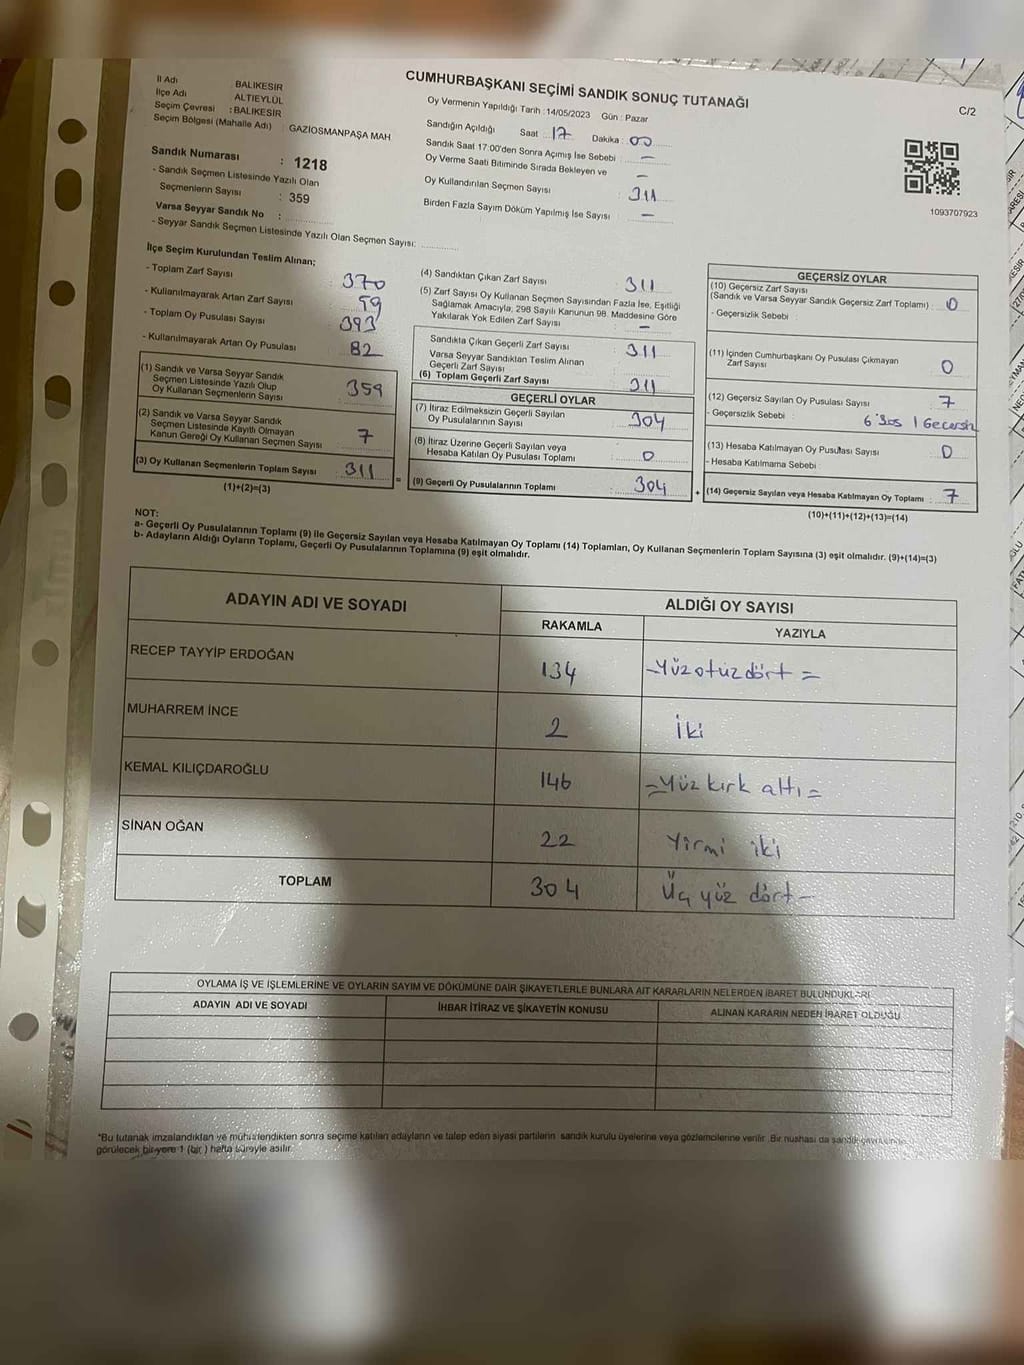 CUMHURBAŞKANI SEÇİMİ SANDIK SONUÇ TUTANAĞI
C/2
İl Adı : BALIKESİR
İlçe Adı : ALTIEYLÜL
Seçim Çevresi : BALIKESİR
Seçim Bölgesi (Mahalle Adı) : GAZİOSMANPAŞA MAH
Sandık Numarası : 1218
- Sandık Seçmen Listesinde Yazılı Olan
Seçmenlerin Sayısı : 359
Varsa Seyyar Sandık No :
- Seyyar Sandık Seçmen Listesinde Yazılı Olan Seçmen Sayısı:
Oy Vermenin Yapıldığı Tarih : 14/05/2023 Gün : Pazar
Sandığın Açıldığı Saat : 17 Dakika : 00
Sandık Saat 17:00'den Sonra Açımış İse Sebebi : -
Oy Verme Saati Bitiminde Sırada Bekleyen ve -
Oy Kullandırılan Seçmen Sayısı : 311
Birden Fazla Sayım Döküm Yapılmış İse Sayısı : -
1093707923
İlçe Seçim Kurulundan Teslim Alınan;
- Toplam Zarf Sayısı : 370
- Kullanılmayarak Artan Zarf Sayısı : 59
- Toplam Oy Pusulası Sayısı : 393
- Kullanılmayarak Artan Oy Pusulası : 82
(1) Sandık ve Varsa Seyyar Sandık
Seçmen Listesinde Yazılı Olup
Oy Kullanan Seçmenlerin Sayısı : 359
(2) Sandık ve Varsa Seyyar Sandık
Seçmen Listesinde Kayıtlı Olmayan
Kanun Gereği Oy Kullanan Seçmen Sayısı : 7
(3) Oy Kullanan Seçmenlerin Toplam Sayısı : 311
(1)+(2)=(3)
(4) Sandıktan Çıkan Zarf Sayısı : 311
(5) Zarf Sayısı Oy Kullanan Seçmen Sayısından Fazla İse, Eşitliği
Sağlamak Amacıyla, 298 Sayılı Kanunun 98. Maddesine Göre
Yakılarak Yok Edilen Zarf Sayısı : -
Sandıkta Çıkan Geçerli Zarf Sayısı : 311
Varsa Seyyar Sandıktan Teslim Alınan
Geçerli Zarf Sayısı :
(6) Toplam Geçerli Zarf Sayısı : 311
GEÇERLİ OYLAR
(7) İtiraz Edilmeksizin Geçerli Sayılan
Oy Pusulalarının Sayısı : 304
(8) İtiraz Üzerine Geçerli Sayılan veya
Hesaba Katılan Oy Pusulası Toplamı : 0
= (9) Geçerli Oy Pusulalarının Toplamı : 304
GEÇERSİZ OYLAR
(10) Geçersiz Zarf Sayısı
(Sandık ve Varsa Seyyar Sandık Geçersiz Zarf Toplamı) : 0
- Geçersizlik Sebebi :
(11) İçinden Cumhurbaşkanı Oy Pusulası Çıkmayan
Zarf Sayısı : 0
(12) Geçersiz Sayılan Oy Pusulası Sayısı : 7
- Geçersizlik Sebebi : 6 Bos 1 Gecersiz
(13) Hesaba Katılmayan Oy Pusulası Sayısı : 0
- Hesaba Katılmama Sebebi :
+ (14) Geçersiz Sayılan veya Hesaba Katılmayan Oy Toplamı : 7
(10)+(11)+(12)+(13)=(14)
NOT:
a- Geçerli Oy Pusulalarının Toplamı (9) ile Geçersiz Sayılan veya Hesaba Katılmayan Oy Toplamı (14) Toplamları, Oy Kullanan Seçmenlerin Toplam Sayısına (3) eşit olmalıdır. (9)+(14)=(3)
b- Adayların Aldığı Oyların Toplamı, Geçerli Oy Pusulalarının Toplamına (9) eşit olmalıdır.
ADAYIN ADI VE SOYADI ALDIĞI OY SAYISI
RAKAMLA YAZIYLA
RECEP TAYYİP ERDOĞAN 134 -Yüz otuz dört =
MUHARREM İNCE 2 İki
KEMAL KILIÇDAROĞLU 146 =Yüz kırk altı=
SİNAN OĞAN 22 Yirmi iki
TOPLAM 304 Üç yüz dört-
OYLAMA İŞ VE İŞLEMLERİNE VE OYLARIN SAYIM VE DÖKÜMÜNE DAİR ŞİKAYETLERLE BUNLARA AİT KARARLARIN NELERDEN İBARET BULUNDUKLARI
ADAYIN ADI VE SOYADI İHBAR İTİRAZ VE ŞİKAYETİN KONUSU ALINAN KARARIN NEDEN İBARET OLDUĞU
*Bu tutanak imzalandıktan ve mühürlendikten sonra seçime katılan adayların ve talep eden siyasi partilerin sandık kurulu üyelerine veya gözlemcilerine verilir. Bir nüshası da sandık çevresinde
görülecek bir yere 1 (bir ) hafta süreyle asılır.